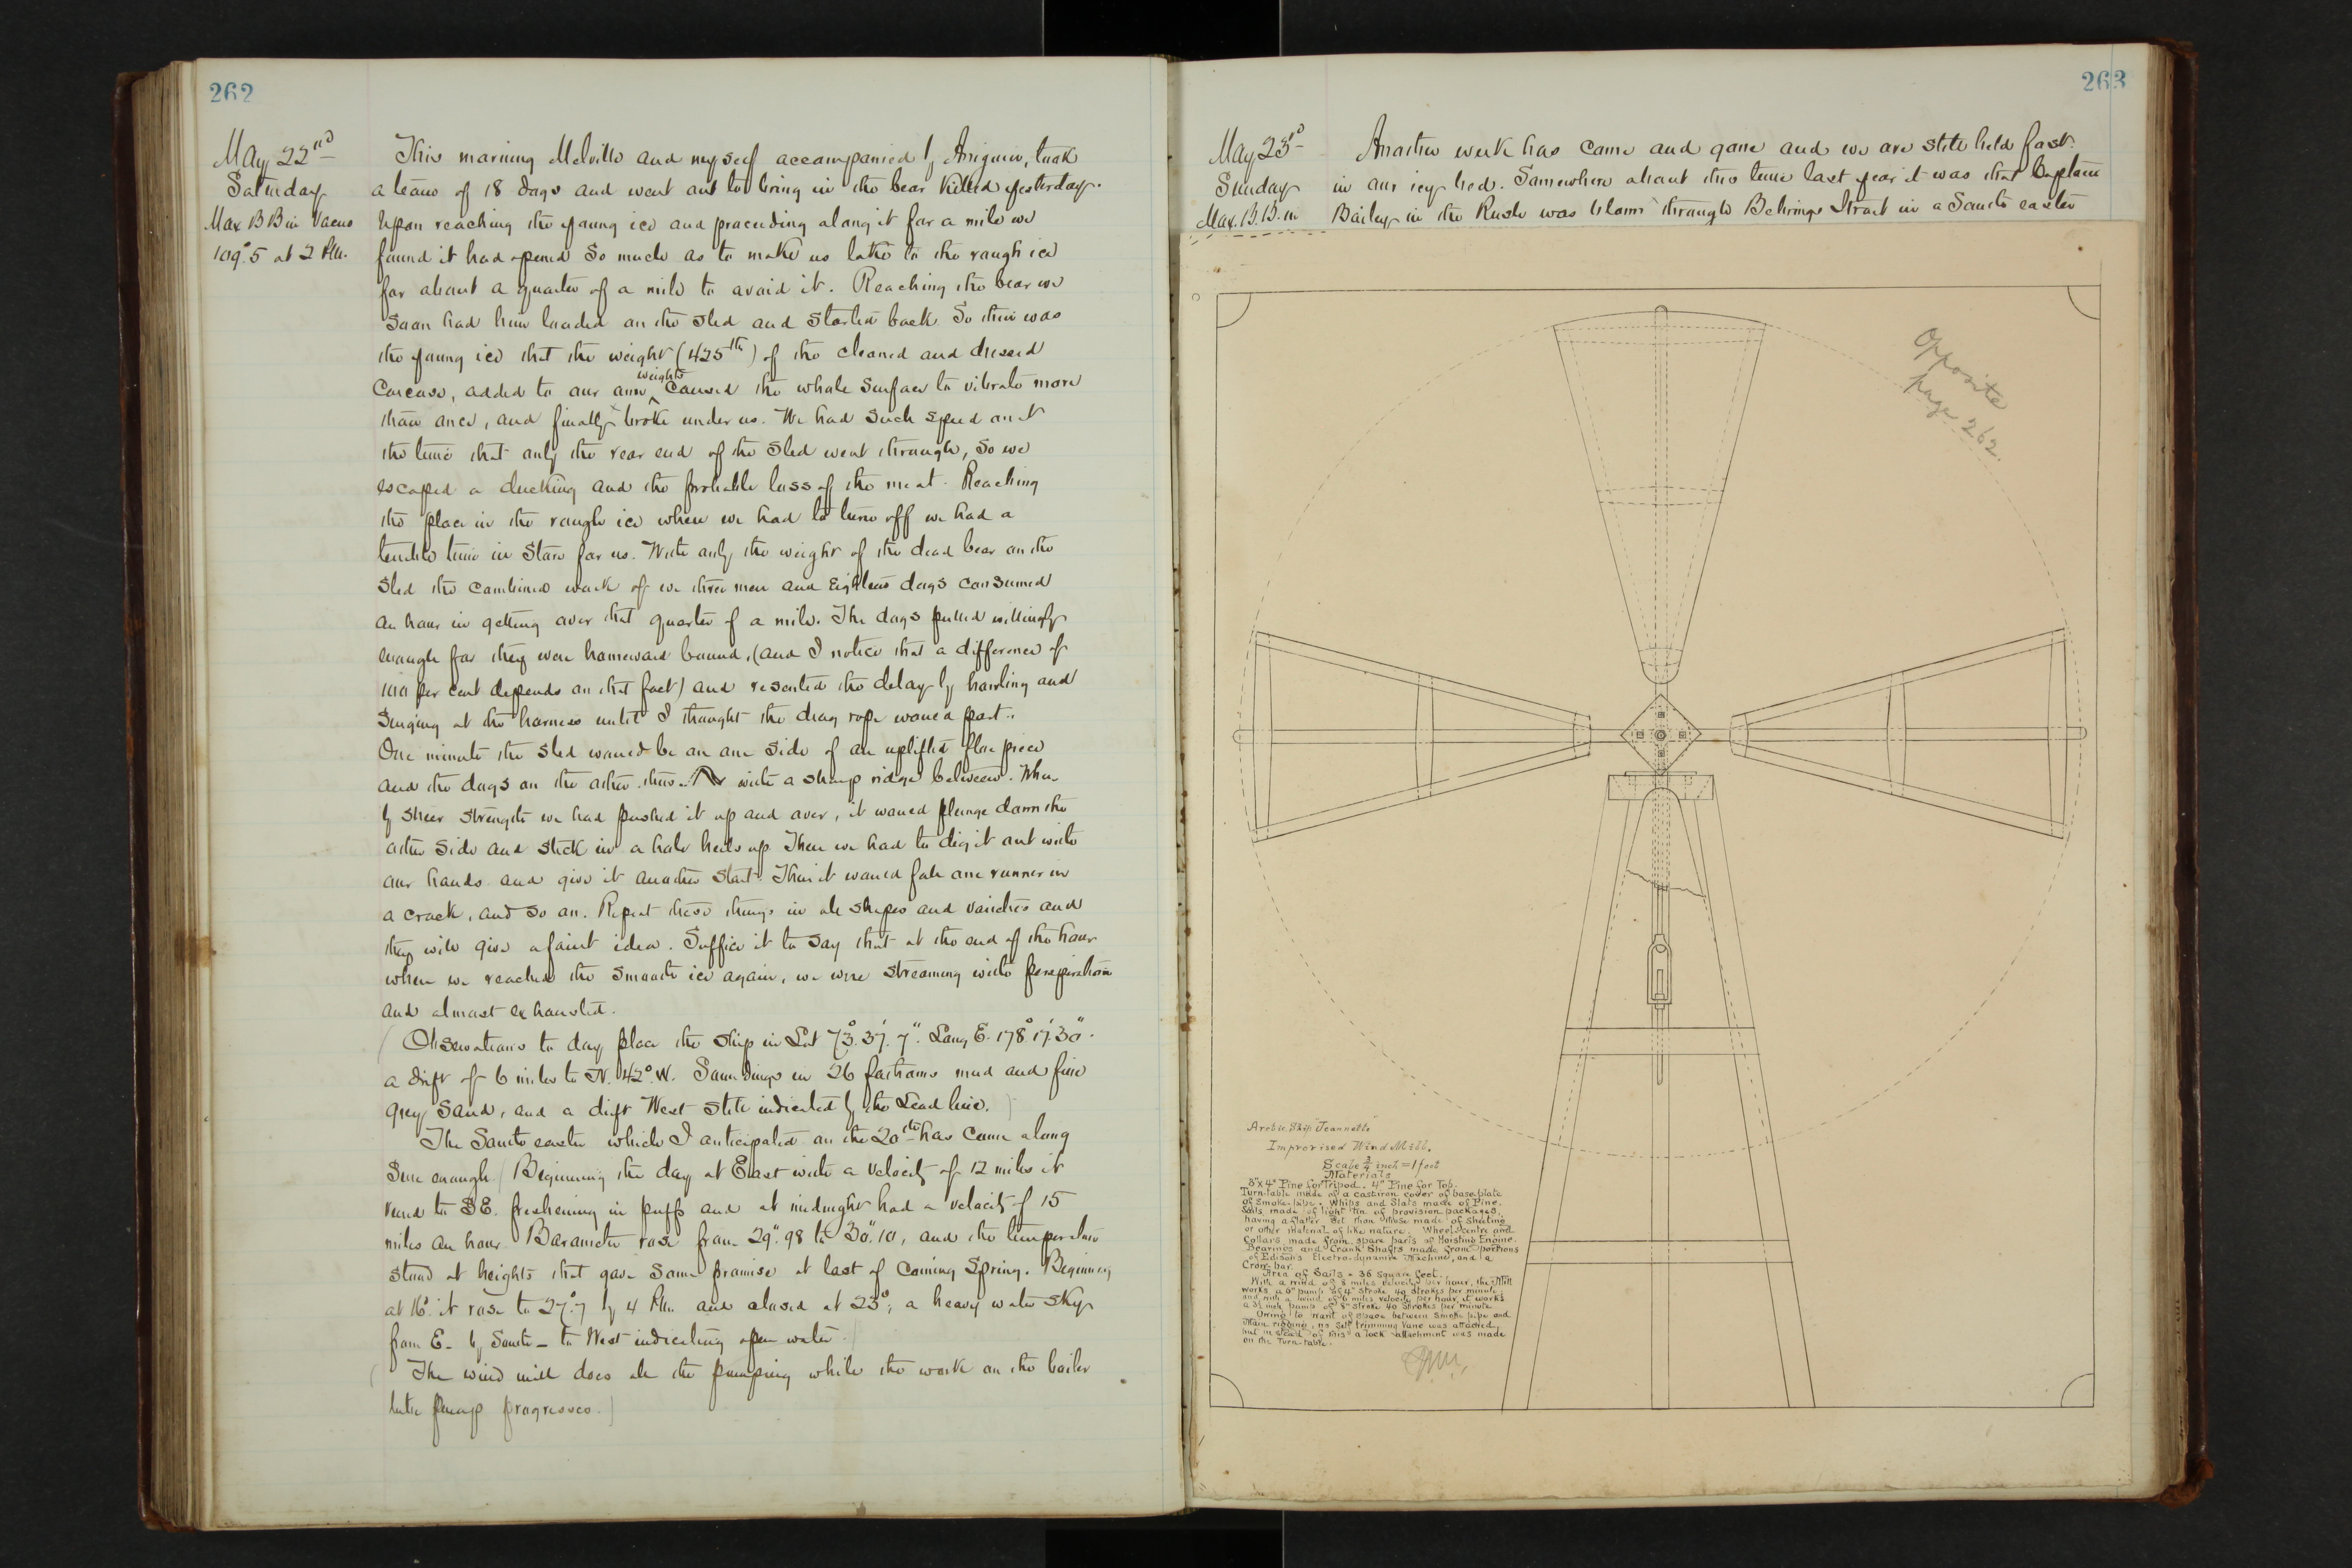 262
May 22nd
Saturday
Max BB in Vacuo
109°.5 at 2 P.M.
This morning Melville and myself accompanied by Aneguin, took
a team of 18 dogs and went out to bring in the bear killed yesterday.
Upon reaching the young ice and proceeding along it for a mile we
found it had opened so much as to make us take to the rough ice
for about a quarter of a mile to avoid it. Reaching the bear we
soon had him loaded on the sled and started back. So thin was
the young ice that the weight (425 lbs) of the cleaned and dressed
carcass, added to our own weights caused the whole surface to vibrate more
than once, and finally broke under us. We had such speed on at
the time that only the rear end of the sled went through, so we
escaped a ducking and the probable loss of the meat. Reaching
the place in the rough ice where we had to turn off we had a
terrible time in store for us. With only the weight of the dead bear on the
sled the combined work of we three men and eighteen dogs consumed
an hour in getting over that quarter of a mile. The dogs pulled willingly
enough for they were homeward bound, (and I notice that a difference of
100 per cent depends on that fact) and resented the delay by howling and
at the harness until I thought the drag rope would part.
One minute the sled would be on one side of an uplifted floe piece
and the dogs on the other thus with a sharp ridge between. When
by sheer strength we had pushed it up and over, it would plunge down the
other side and stick in a hole heels up. Then we had to dig it out with
our hands and give it another start. Then it would fall one runner in
a crack, and so on. Repeat these things in all shapes and varieties and
they will give a faint idea. Suffice it to say that at the end of the hour
when we reached the smooth ice again, we were streaming with perspiration
and almost exhausted.
(Observations to day place the ship in Lat 73°.37'.7". Long E. 178°.17'.30".
a drift of 6 miles to N. 42° W. Soundings in 26 fathoms mud and fine
grey sand, and a drift West still indicated by the Lead line.)
The South easter which I anticipated on the 20th has come along
sure enough. (Beginning the day at East with a velocity of 12 miles it
veered to SE. freshening in puffs and at midnight had a velocity of 15
miles an hour. Barometer rose from 29".98 to 30".10, and the temperature
stood at heights that gave some promise at last of coming Spring. Beginning
at 16° it rose to 27°.7 by 4 P.M. and closed at 23°; a heavy water sky
from E. by South - to West indicating open water.)
(The wind mill does all the pumping while the work on the boiler
pump progresses.)
263
May 23d
Sunday
Max. B.B. in
Another week has come and gone and we are still held fast
in our icy bed. Somewhere about this time last year it was that Captain
Bailey in the Rush was blown through Behrings Strait in a South easter
Opposite
page 262.
Arctic Ship "Jeannette"
Improvised Wind Mill.
Scale 3/4 inch = 1 foot
Materials
3"x4" Pine for Tripod. 4" Pine for Top.
Turn-table made of a cast iron cover of base plate
of smoke pipe. Whips and Slats made of Pine.
Sails made of light tin of provision packages,
having a flatter set than those made of sheeting
or other material of like nature. Wheel Centre and
Collars made from spare parts of Hoisting Engine.
Bearings and Crank Shafts made from portions
of Edison's Electro-dynamic Machine, and a
Crow-bar.
Area of Sails = 36 square feet.
With a wind of 8 miles velocity per hour, the Mill
works a 6" pump of 4" stroke 40 strokes per minute
and with a wind of 6 miles velocity per hour, it works
a 3½ inch pump of 8" stroke 40 strokes per minute
Owing to want of space between smoke pipe and
Main rigging, no self trimming vane was attached,
but in stead of this a lock attachment was made
on the Turn-table.